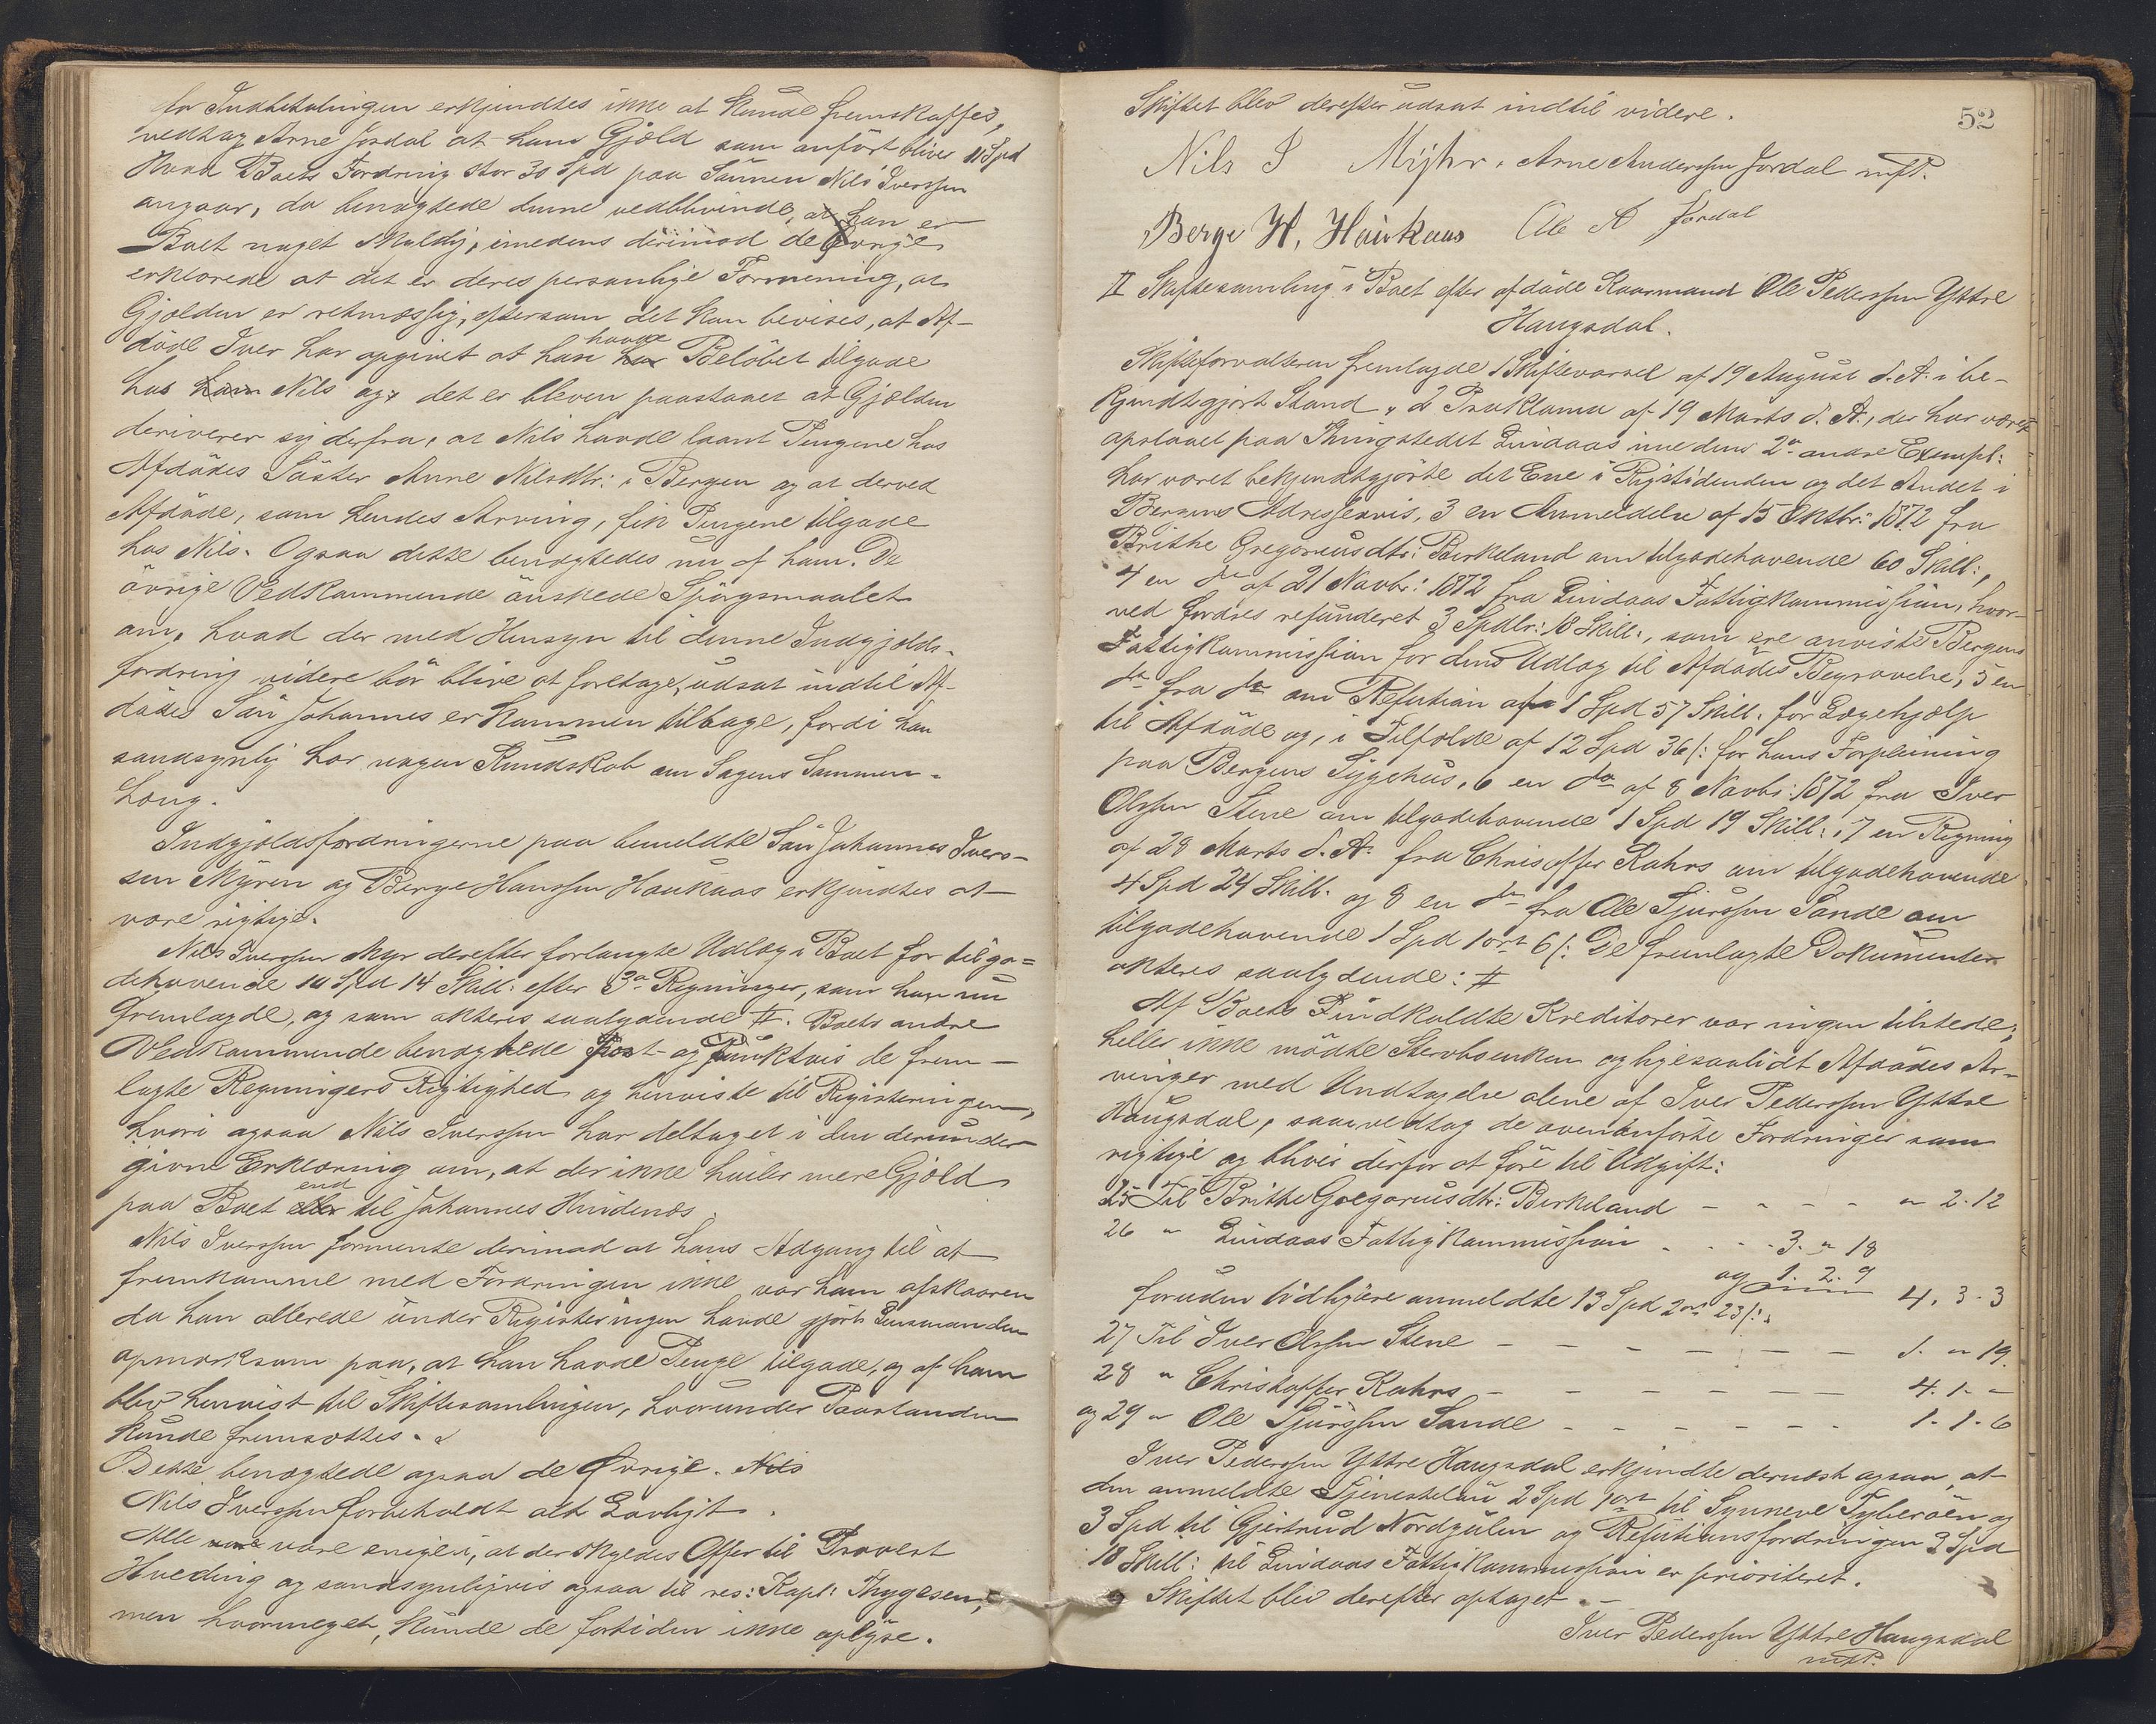 for Indbetalingen erkjendtes ikke at kunde fremskaffes,
vedtog Arne Jordal at hans Gjæld som anført bliver 11 Spd
Hvad Boets Fordring stor 30 Spd paa Sønnen Nils Iverssen
angaar, da benægtede denne vedblivende, at han er
Boet noget skyldig, imedens derimod de Øvrige
erklærede at det er deres personlige Formening, at
Gjælden er retmæssig, eftersom det kan bevises, at Af-
døde Iver har opgivet at han havde Beløbet tilgode
hos Nils og det er bleven paastaaet at Gjælden
deriverer sig derfra, at Nils havde laant Pengene hos
Afdødes Søster Anne Nilsdtr: i Bergen og at derved
Afdøde, som hendes Arving, fik Pengene tilgode
hos Nils. Ogsaa dette benægtedes nu af ham. De
øvrige Vedkommende ønskede Spørgsmaalet
om, hvad der med Hensyn til denne Indgjælds-
fordring videre bør blive at foretage, udsat indtil Af-
dødes Søn Johannes er kommen tilbage, fordi han
sandsynlig har nogen Kundskab om Sagens Sammen-
hæng.
Indgjældsfordringerne paa bemeldte Søn Johannes Ivers-
sen Myren og Berge Hanssen Haukaas erkjendtes at
være rigtige.
Nils Iverssen Myr derefter forlangte Udlæg i Boet for tilgo=
dehavende 10 Spd 14 Skill: efter 3de Regninger, som han nu
fremlagde, og som akteres saalydende #. Boets andre
Vedkommende benægtede Post- og Punktvis de frem-
lagte Regningers Rigtighed og henviste til Registeringen,
hvori ogsaa Nils Iverssen har deltaget i den derunder
givne Erklæring om, at der ikke hviler mere Gjæld
paa Boet end til Johannes Hindenæs.
Nils Iverssen formente derimod at hans Adgang til at
fremkomme med Fordringen ikke var ham afskaaren
da han allerede under Registeringen havde gjort Lensmanden
opmærksom paa, at han havde Penge tilgode, og af ham
blev henvist til Skiftesamlingen, hvorunder Paastanden
kunde fremsættes.
Dette benægtede ogsaa de Øvrige. Nils
Nils Iverssen forbeholdt alt Lovligt.
Alle vare enige i, at der skyldes Offer til Provst
Hveding og sandsynligvis ogsaa til res: Kapl: Thygesen,
men hvormeget, kunde de fortiden ikke oplyse.
52
Skiftet blev derefter udsat indtil videre.
Nils I Myhr. Arne Anderssen Jordal mfP.
Berge H. Haukaas Ole A Jordal
II Skiftesamling i Boet efter afdøde Kaarmand Ole Pederssen Yttre
Haugsdal.
Skifteforvalteren fremlagde 1 Skiftevarsel af 19 August d. A. i be-
kjendtgjort Stand, 2 Proklama af 19 Marts d. A., der har været
opslaaet paa Thingstedet Lindaas imedens 2de andre Exempl:
har været bekjendtgjorte det Ene i Rigstidenden og det Andet i
Bergens Adresseavis, 3 en Anmeldelse af 15 Oktbr: 1872 fra
Brithe Gregoriusdtr: Birkeland om tilgodehavende 60 Skill:,
4 en do af 21 Novbr: 1872 fra Lindaas Fattigkommission, hvor-
ved fordres refunderet 3 Spdlr: 18 Skill:, som ere anviste Bergens
Fattigkommission for dens Udlæg til Afdødes Begravelse, 5 en
do fra do om Refution af 1 Spd 57 Skill: for Lægehjælp
til Afdøde og, i Tilfælde af 12 Spd 36 /: for hans Forpleining
paa Bergens Sygehus, 6 en do af 8 Novbr: 1872 fra Iver
Olssen Stene om tilgodehavende 1 Spd 19 Skill:, 7 en Regning
af 28 Marts d. A. fra Christoffer Kahrs om tilgodehavende
4 Spd 24 Skill: og 8 en do fra Ole Sjurssen Sande om
tilgodehavende 1 Spd 1 ort 6 /: De fremlagte Dokumenter
akteres saalydende: #
Af Boets Indkaldte Kreditorer var ingen tilstede;
heller ikke mødte Stervboenken og ligesaalidt Afdødes Ar-
vinger med Undtagelse alene af Iver Pederssen Yttre
Haugsdal, som vedtog de ovenanførte Fordringer som
rigtige og bliver derfor at føre til Udgift:
25 Til Brithe Gregoriusdtr: Birkeland - - - - " 2. 12
26 " Lindaas Fattigkommission - - - 3. " 18
og 1. 2. 9
foruden tidligere anmeldte 13 Spd 2 ort 23 /: 4. 3. 3
27 Til Iver Olssen Stene - - - - - - - 1. " 19
28 " Christoffer Kahrs - - - - - - - 4. 1. "
og 29 " Ole Sjurssen Sande - - - - - - 1. 1. 6
Iver Pederssen Yttre Haugsdal erkjendte dernæst ogsaa, at
den anmeldte Tjenesteløn 2 Spd 1 ort til Synneve Tyberøen og
3 Spd til Gjertrud Nordgulen og Refutionsfordringen 3 Spd
18 Skill: til Lindaas Fattigkommission er prioriteret.
Skiftet blev derefter optaget. -
Iver Pederssen Yttre Haugsdal
mfP.